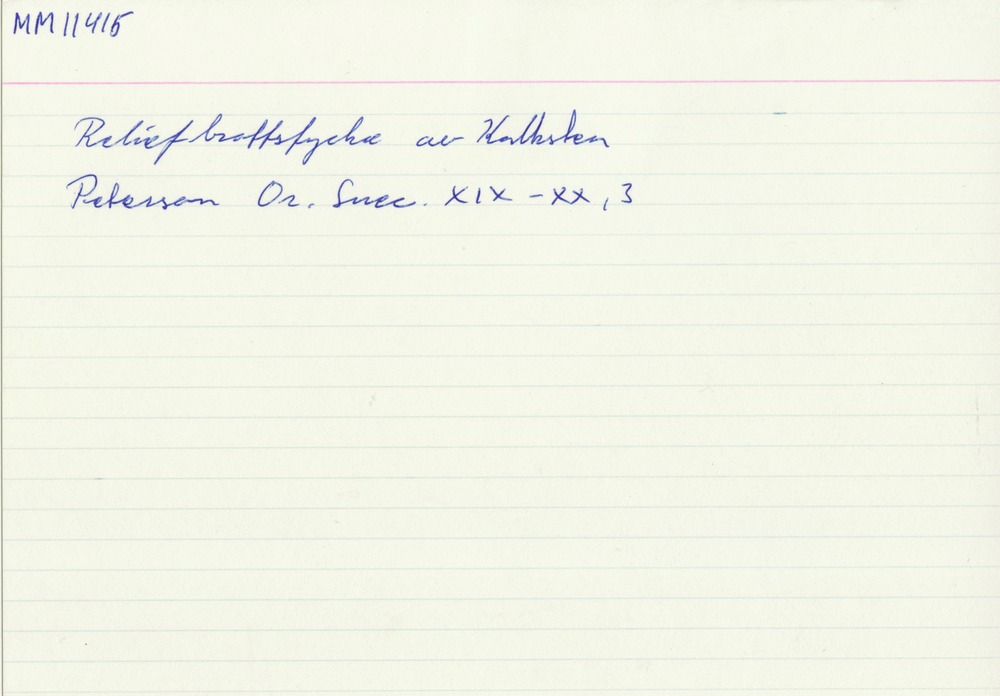 MM11415
Reliefbrottstycke av Kalksten
Peterson Or. Suec. XIX-XX, 3